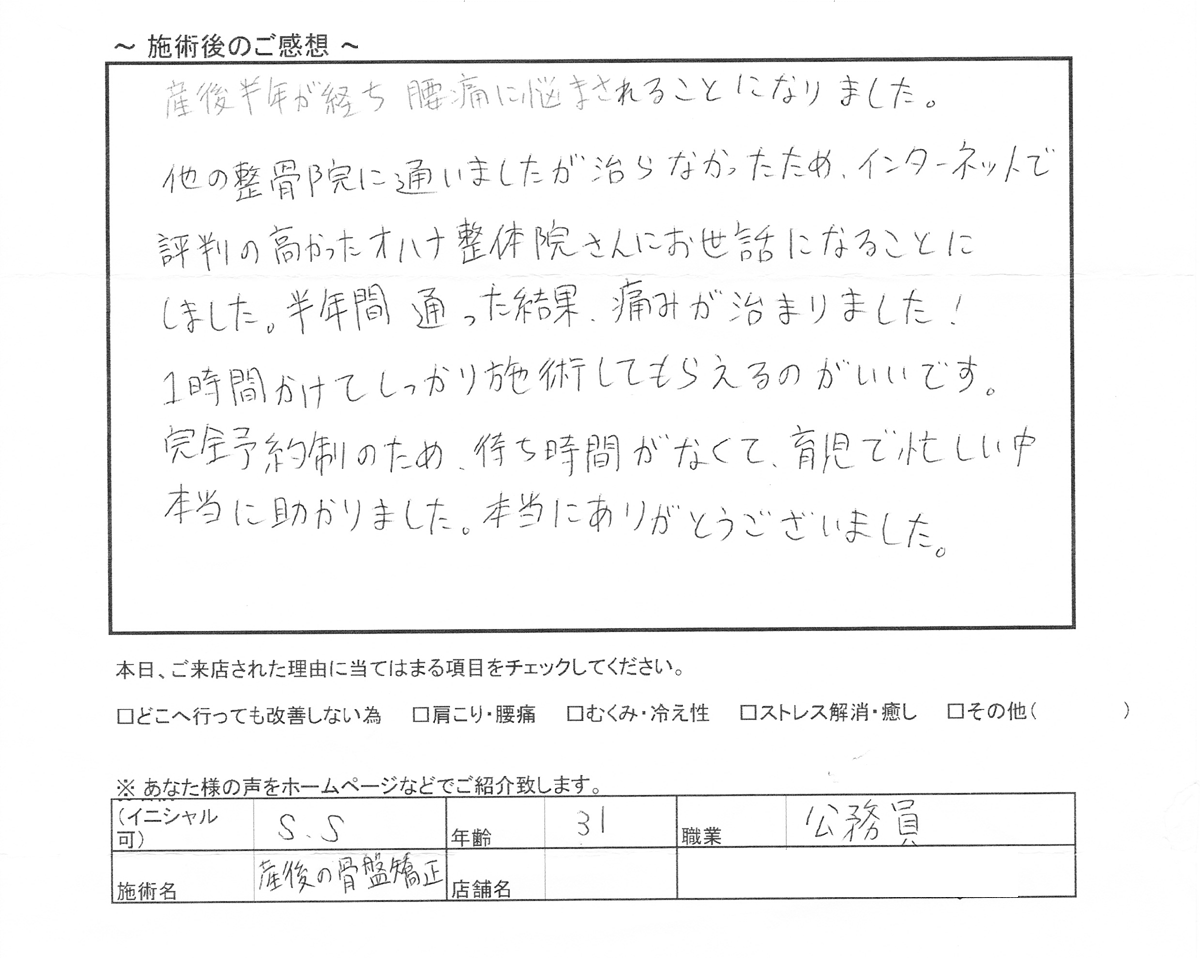 ～ 施術後のご感想 ～
産後半年が経ち 腰痛に悩まされることになりました。
他の整骨院に通いましたが治らなかったため、インターネットで
評判の高かったオハナ整体院さんにお世話になることに
しました。半年間 通った結果、痛みが治まりました!
1時間かけてしっかり施術してもらえるのがいいです。
完全予約制のため、待ち時間がなくて、育児で忙しい中
本当に助かりました。本当にありがとうございました。
本日、ご来店された理由に当てはまる項目をチェックしてください。
□どこへ行っても改善しない為 □肩こり・腰痛 □むくみ・冷え性 □ストレス解消・癒し □その他( )
※ あなた様の声をホームページなどでご紹介致します。
(イニシャル可) S.S 年齢 31 職業 公務員
施術名 産後の骨盤矯正 店舗名